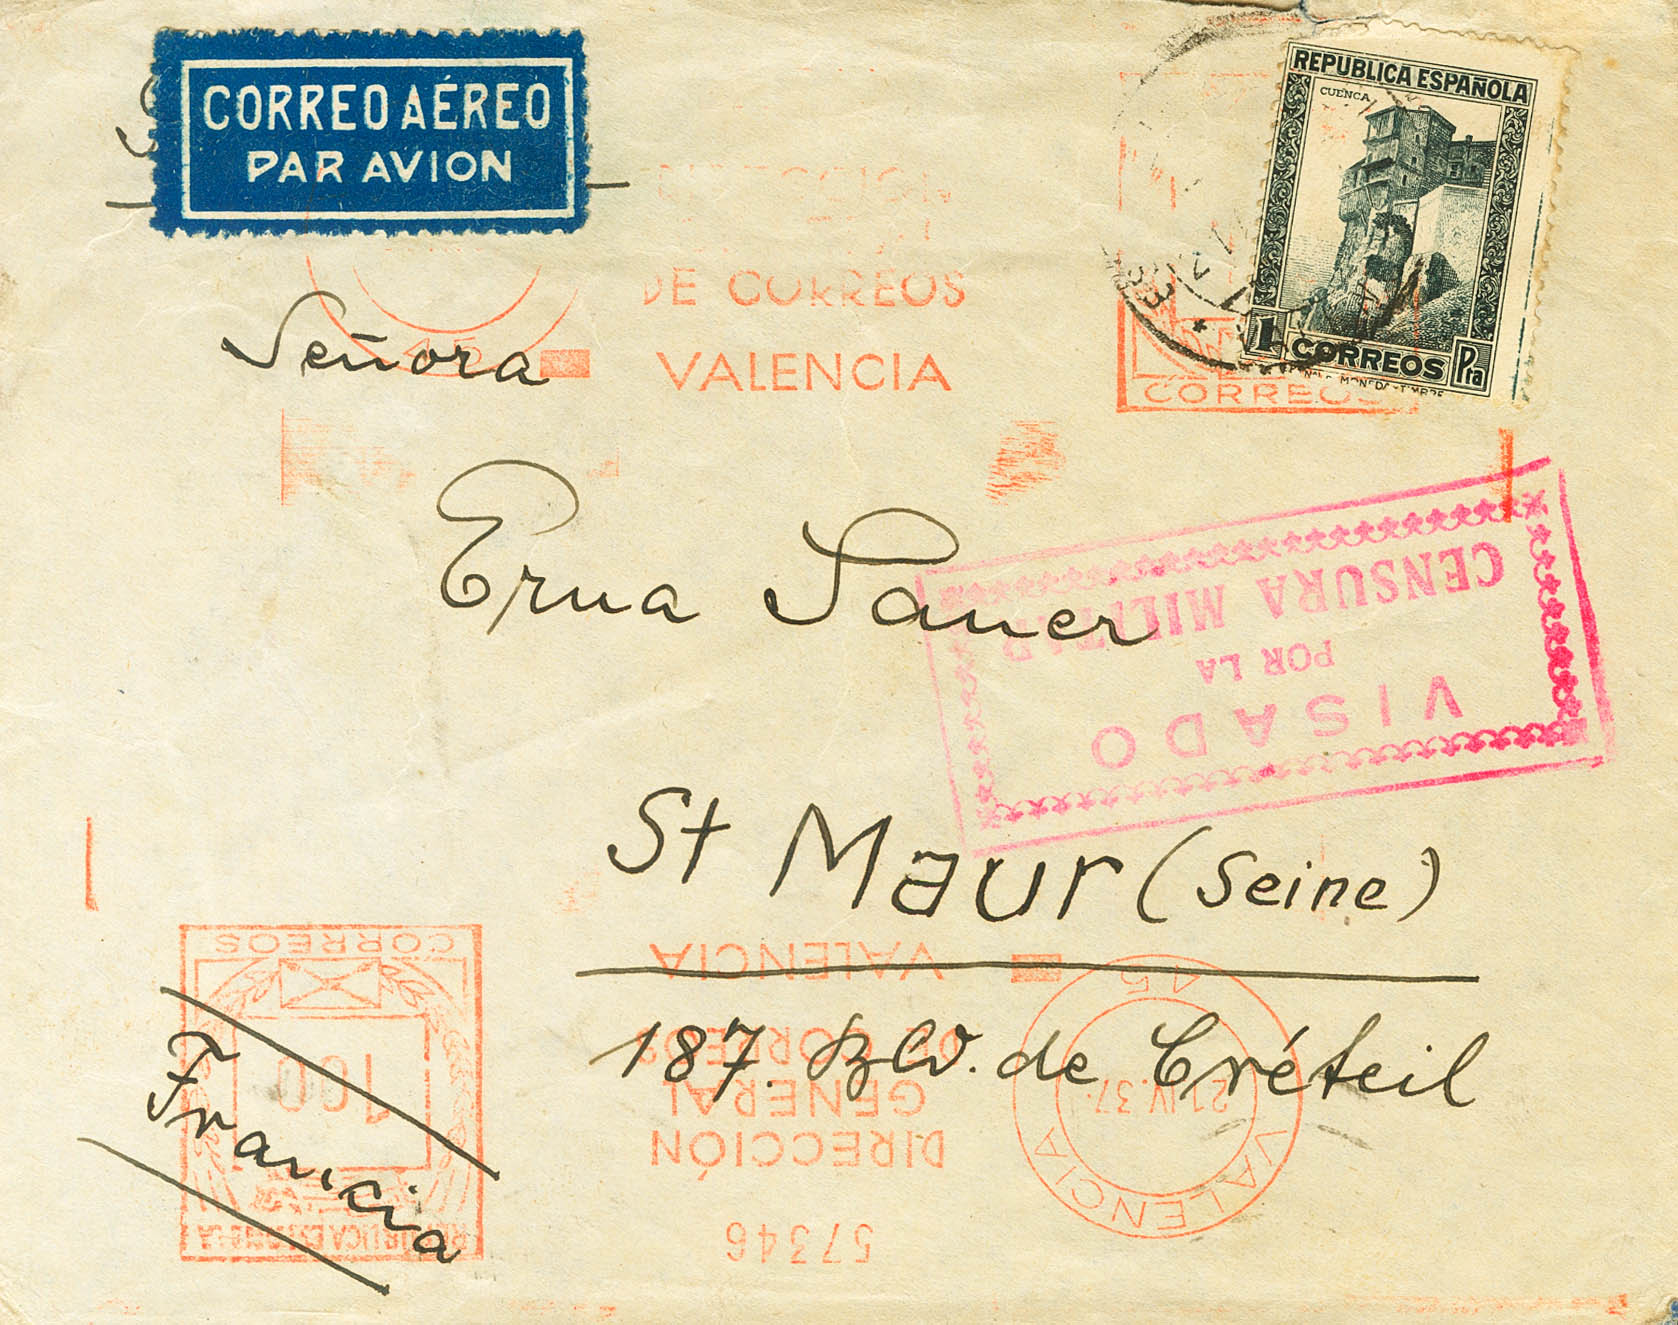 CORREO AÉREO
PAR AVION
REPUBLICA ESPAÑOLA
CUENCA
1 CORREOS Pta
DE CORREOS
VALENCIA
CORREOS
Señora
Erna Sauer
VISADO
POR LA
CENSURA MILITAR
St Maur (Seine)
187. Blv. de Créteil
Francia
CORREOS
100
REPUBLICA ESPAÑOLA
VALENCIA
DE CORREOS
GENERAL
DIRECCIÓN
57346
21 IV. 37
VALENCIA